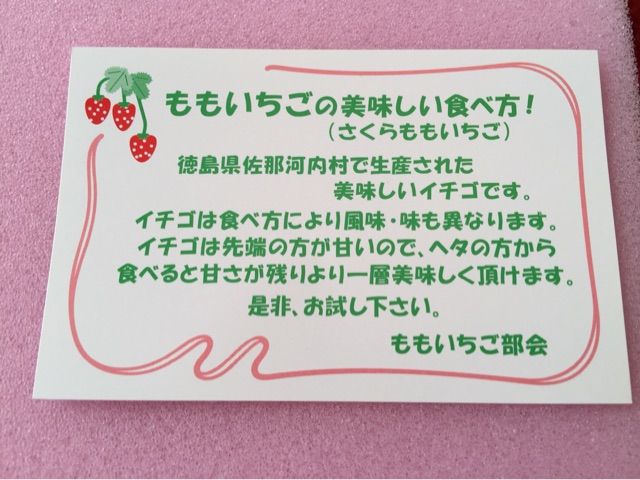 ももいちごの美味しい食べ方！
（さくらももいちご）
徳島県佐那河内村で生産された
美味しいイチゴです。
イチゴは食べ方により風味・味も異なります。
イチゴは先端の方が甘いので、ヘタの方から
食べると甘さが残りより一層美味しく頂けます。
是非、お試し下さい。
ももいちご部会